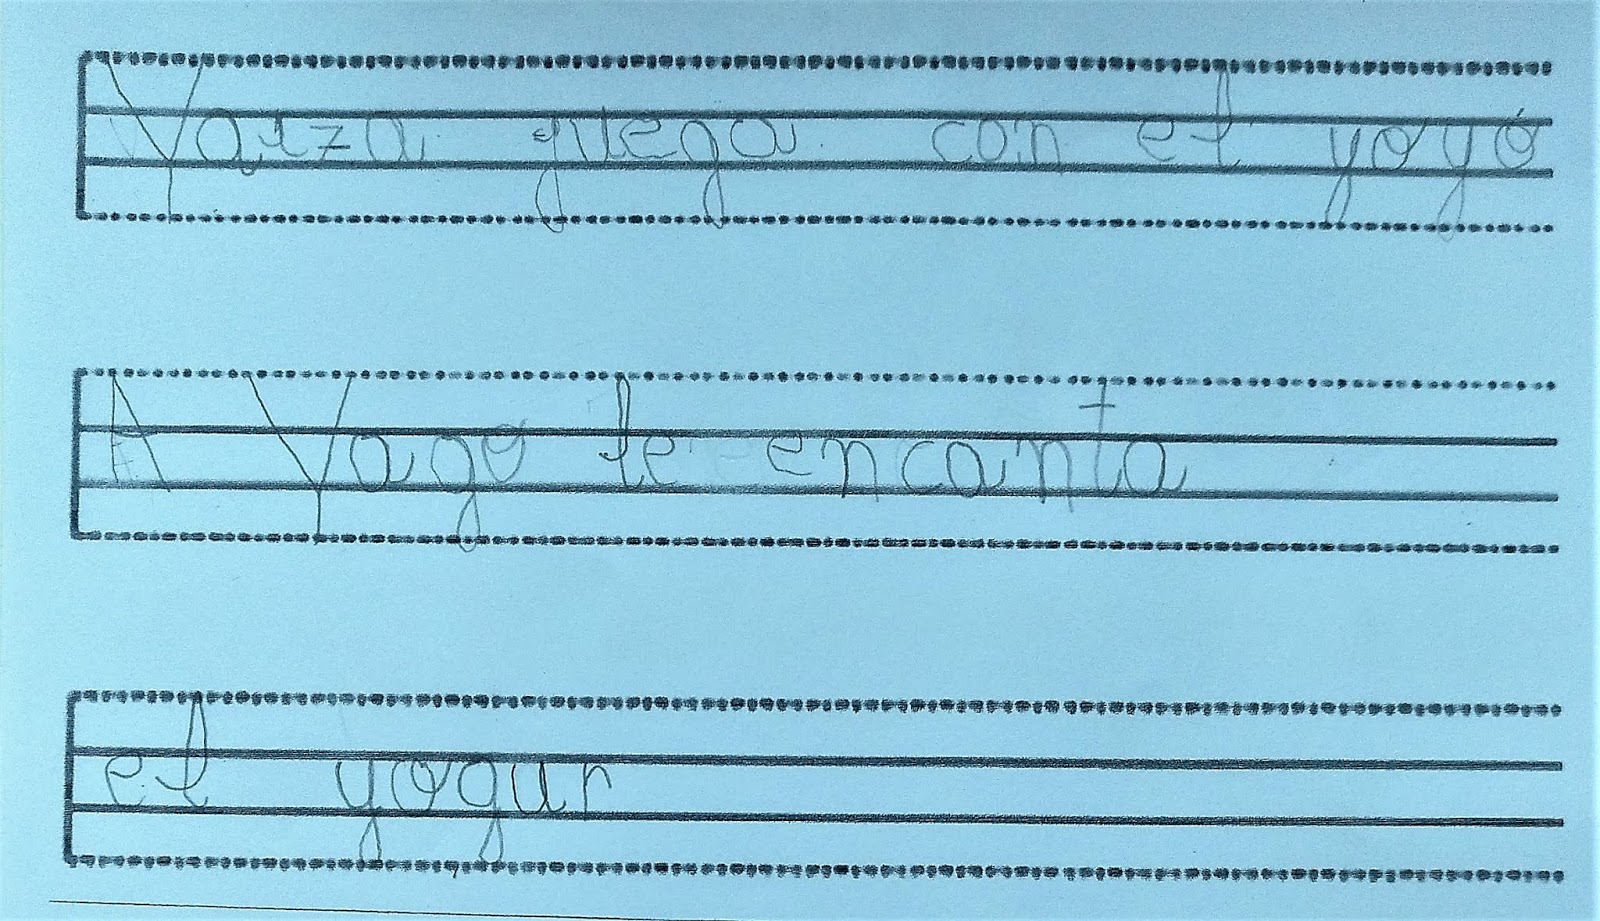 Yaiza guega con el yoyó
A Yago le encanta
el yogur